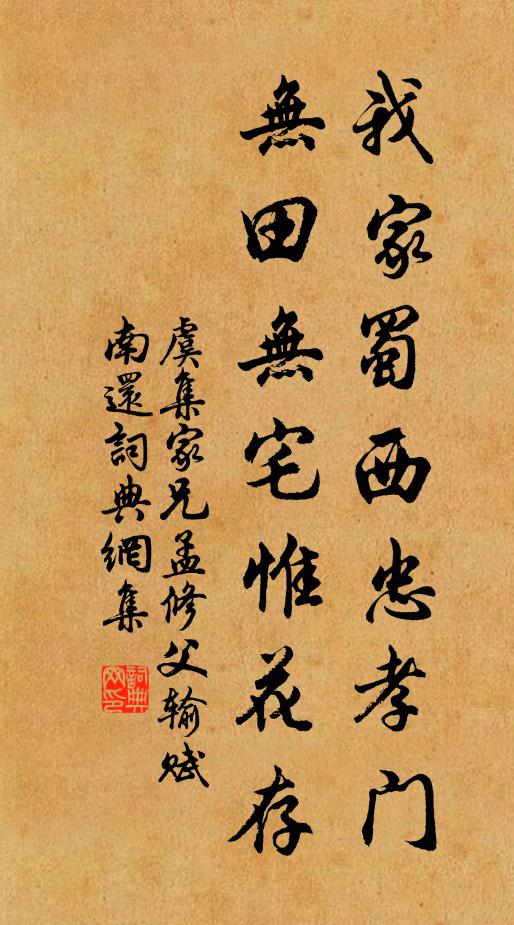 我家蜀西忠孝门
無田無宅惟花存
虞集家兄孟修父输赋
南還詞典網集
詞典网印